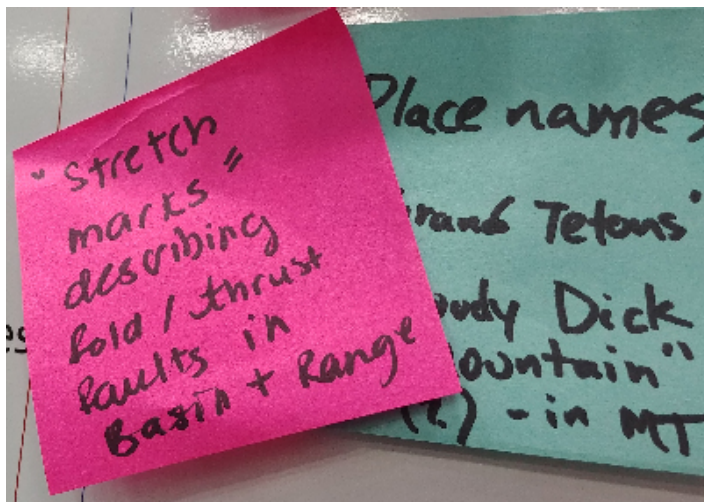 "Stretch
marks"
describing
fold/thrust
faults in
Basin + Range
Place names
Grand Tetons"
Dick
ountain"
(?) - in MT